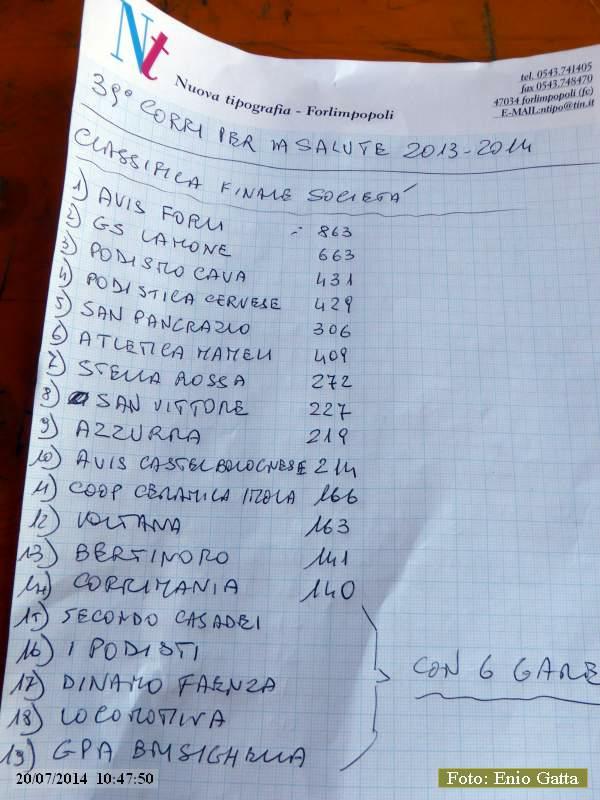 Nt
Nuova tipografia - Forlimpopoli
tel. 0543.741405
fax 0543.748470
47034 forlimpopoli (fc)
E-MAIL:ntipo@tin.it
39° CORRI PER LA SALUTE 2013-2014
CLASSIFICA FINALE SOCIETÁ
1) AVIS FORLI - 863
2) GS LAMONE 663
3) PODISMO CAVA 431
4) PODISTICA CERVESE 429
5) SAN PANCRAZIO 306
6) ATLETICA MAMELI 409
7) STELLA ROSSA 272
8) SAN VITTORE 227
9) AZZURRA 219
10) AVIS CASTELBOLOGNESE 214
11) COOP CERAMICA IMOLA 166
12) VOLTANA 163
13) BERTINORO 141
14) CORRIMANIA 140
15) SECONDO CASADEI
16) I PODISTI
17) DINAMO FAENZA
18) LOCOMOTIVA
19) GPA BRISIGHELLA
CON 6 GARE
20/07/2014 10:47:50
Foto: Enio Gatta